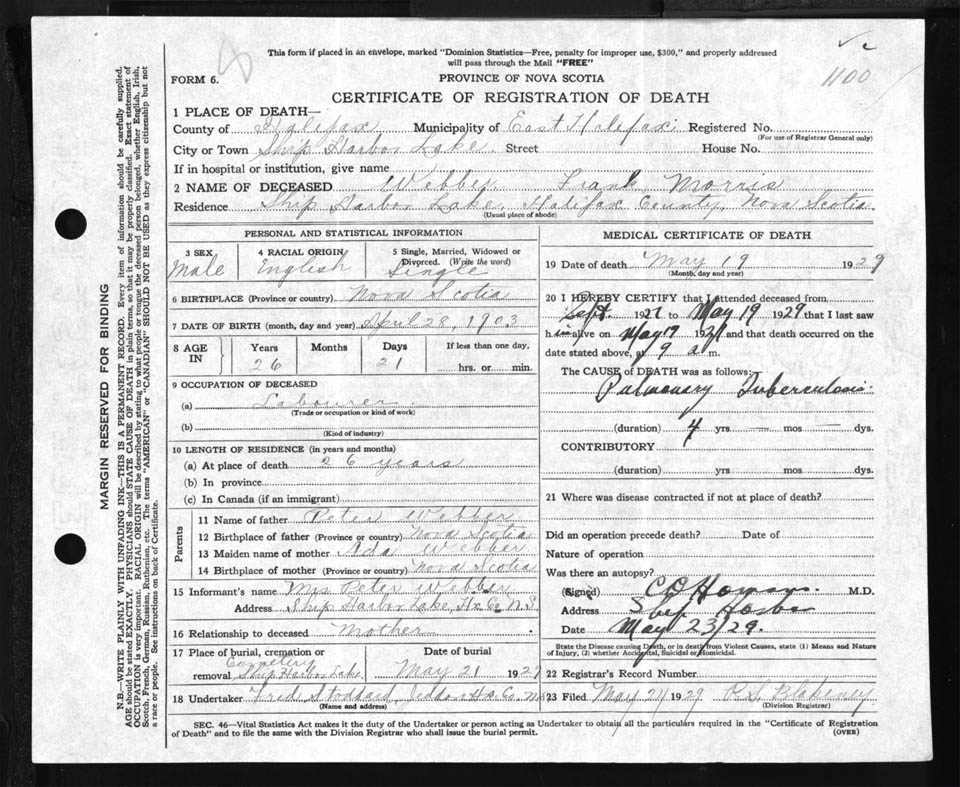 This form if placed in an envelope, marked "Dominion Statistics—Free, penalty for improper use, $300," and properly addressed
will pass through the Mail "FREE"
1100
FORM 6.
PROVINCE OF NOVA SCOTIA
CERTIFICATE OF REGISTRATION OF DEATH
1 PLACE OF DEATH—
County of Halifax Municipality of East Halifax Registered No.
(For use of Registrar General only)
City or Town Ship Harbor Lake Street House No.
If in hospital or institution, give name
2 NAME OF DECEASED Webber Frank Morris
Residence Ship Harbor Lake, Halifax County, Nova Scotia
(Usual place of abode)
PERSONAL AND STATISTICAL INFORMATION
3 SEX 4 RACIAL ORIGIN 5 Single, Married, Widowed or
Divorced. (Write the word)
Male English Single
6 BIRTHPLACE (Province or country) Nova Scotia
7 DATE OF BIRTH (month, day and year) April 28, 1903
8 AGE IN Years Months Days If less than one day,
26 21 hrs. or min.
9 OCCUPATION OF DECEASED
(a) Labourer
(Trade or occupation or kind of work)
(b)
(Kind of industry)
10 LENGTH OF RESIDENCE (in years and months)
(a) At place of death 26 years
(b) In province
(c) In Canada (if an immigrant)
Parents
11 Name of father Peter Webber
12 Birthplace of father (Province or country) Nova Scotia
13 Maiden name of mother Ada Webber
14 Birthplace of mother (Province or country) Nova Scotia
15 Informant's name Mrs Peter Webber
Address Ship Harbor Lake, Hx. Co. N.S.
16 Relationship to deceased Mother
17 Place of burial, cremation or Date of burial
removal Cemetery Ship Harbor Lake May 21 1929
18 Undertaker Fred Stoddard Jeddore Hx. Co. N.S.
(Name and address)
MEDICAL CERTIFICATE OF DEATH
19 Date of death May 19 1929
(Month, day and year)
20 I HEREBY CERTIFY that I attended deceased from
Sept. 1927 to May 19 1929 that I last saw
him alive on May 19 1929 and that death occurred on the
date stated above, at 9 a m.
The CAUSE of DEATH was as follows:
Pulmonary Tuberculosis
(duration) 4 yrs — mos — dys.
CONTRIBUTORY
(duration) yrs mos dys.
21 Where was disease contracted if not at place of death?
Did an operation precede death? Date of
Nature of operation
Was there an autopsy?
(Signed) M.D.
Address Ship Harbor
Date May 23/29.
State the Disease causing Death, or in death from Violent Causes, state (1) Means and
Nature of Injury, (2) whether Accidental, Suicidal or Homicidal.
22 Registrar's Record Number
23 Filed May 24 1929 R S Blakeney
(Division Registrar)
SEC. 46—Vital Statistics Act makes it the duty of the Undertaker or person acting as Undertaker to obtain all the particulars required in the "Certificate of Registration
of Death" and to file the same with the Division Registrar who shall issue the burial permit.
(OVER)
MARGIN RESERVED FOR BINDING
N.B.—WRITE PLAINLY WITH UNFADING INK—THIS IS A PERMANENT RECORD. Every item of information should be carefully supplied.
AGE should be stated EXACTLY. PHYSICIANS should STATE CAUSE OF DEATH in plain terms, so that it may be properly classified. Exact statement of
OCCUPATION is very important. RACIAL ORIGIN will be described by stating to what people or tongue the deceased person belonged, whether English, Irish,
Scotch, French, German, Russian, Ruthenian, etc. The terms "AMERICAN" or "CANADIAN" SHOULD NOT BE USED as they express citizenship but not
a race or people. See instructions on back of Certificate.